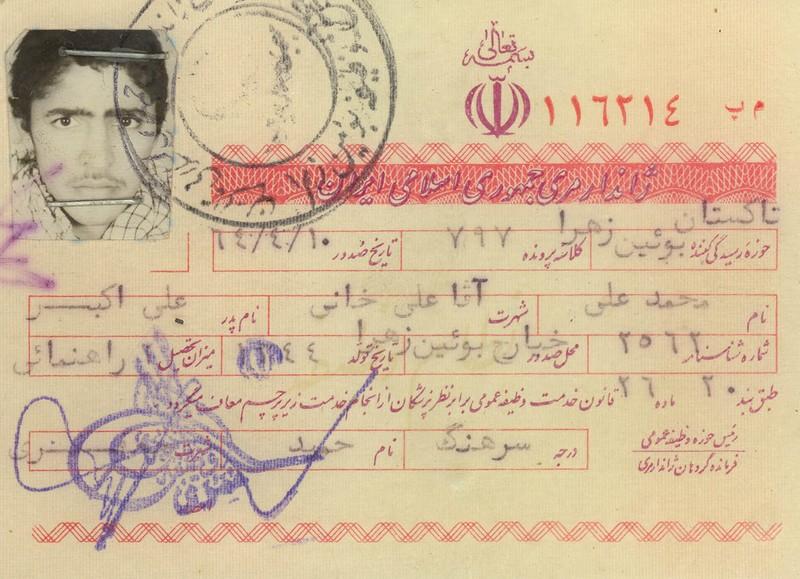 بسمه تعالی
م پ ۱۱۶۲۱٤
ژاندارمری جمهوری اسلامی ایران
تاکستان
حوزه رسیدگی کننده بوئین زهرا کلاسه پرونده ۷۹۷ تاریخ صدور ٦٤/٤/۱۰
نام محمد علی شهرت آقا علی خانی نام پدر علی اکبر
شماره شناسنامه ۲۵٦۲ محل صدور خیارج بوئین زهرا تاریخ تولد ٤٤ میزان تحصیل راهنمائی
طبق بند ۲۰ ماده ۲٦ قانون خدمت وظیفه عمومی برابر نظر پزشکان از انجام خدمت زیر پرچم معاف میگردد
رئیس حوزه وظیفه عمومی
فرمانده گروهان ژاندارمری
درجه سرهنگ نام حمید شهرت
امضاء